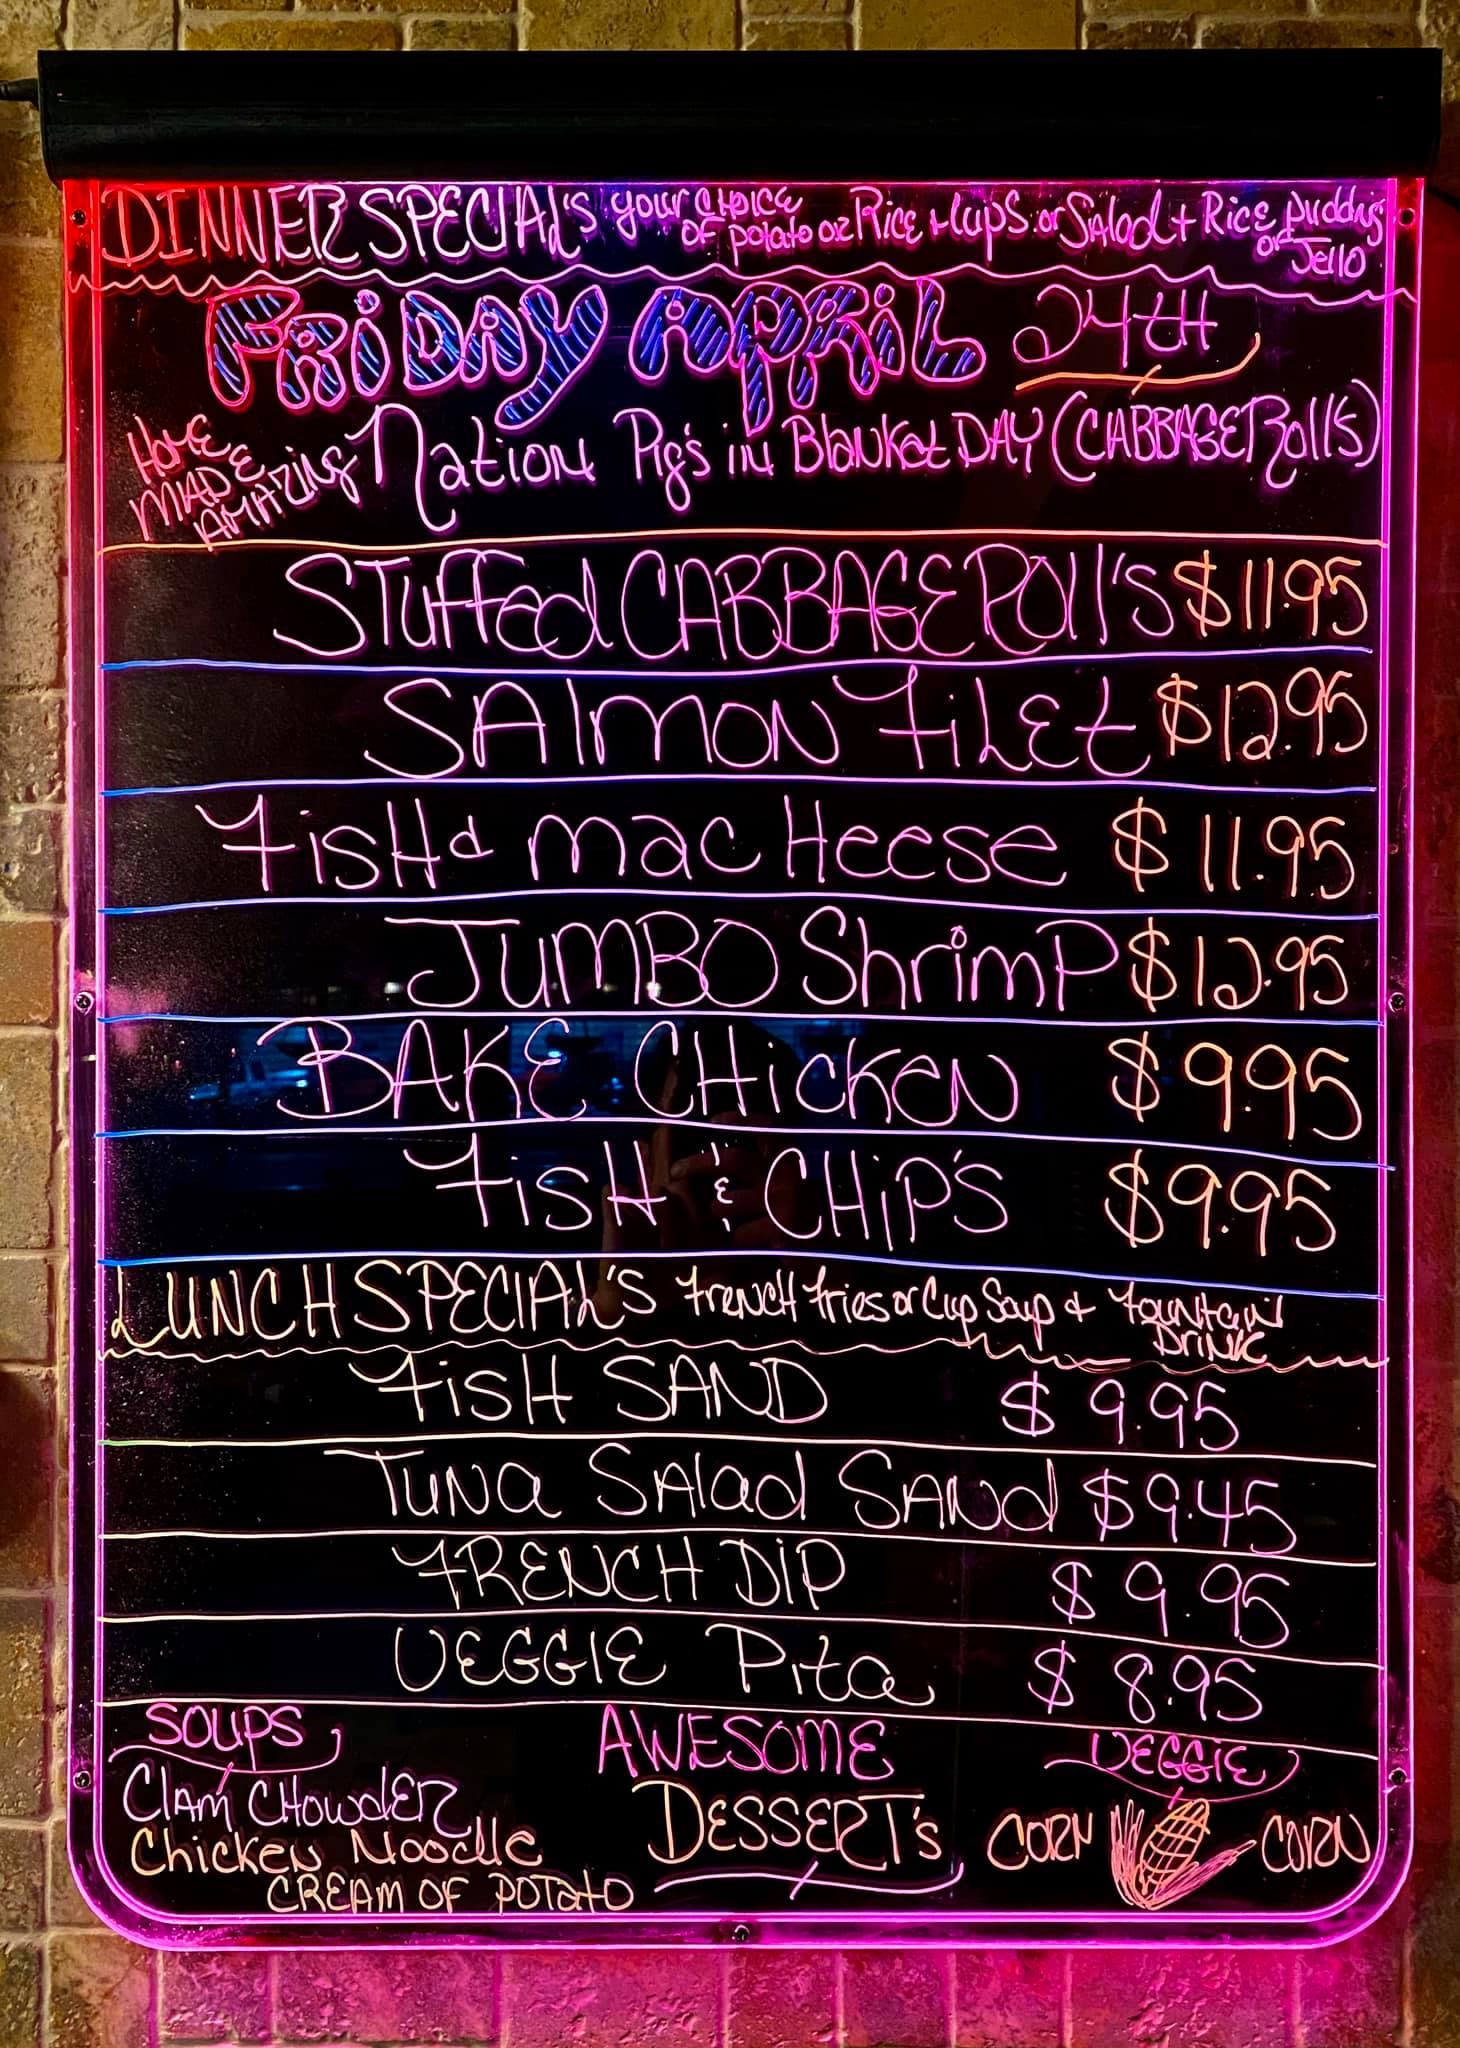 DINNER SPECIAL'S your CHOICE OF potato or Rice + Cups or Salad + Rice pudding or Jello
FRIDAY APRIL 24TH
HOME MADE & AMAZING Nation Pig's in Blanket DAY (CABBAGE Rolls)
STuffed CABBAGE ROll'S $11.95
SAlmON FiLEt $12.95
FisH & mac Heese $11.95
JUMBO ShrimP $12.95
BAKE CHicKEN $9.95
FisH & CHiP'S $9.95
LUNCH SPECIAL'S FrENCH Fries or Cup Soup & Fountain DRINK
FisH SAND $9.95
Tuna Salad SANd $9.45
FRENCH DIP $9.95
VEGGIE Pita $8.95
SOUPS
Clam CHOWdER
Chicken Noodle
CREAM OF POTatO
AWESOME
DESSERT's
VEGGIE
CORN CORN